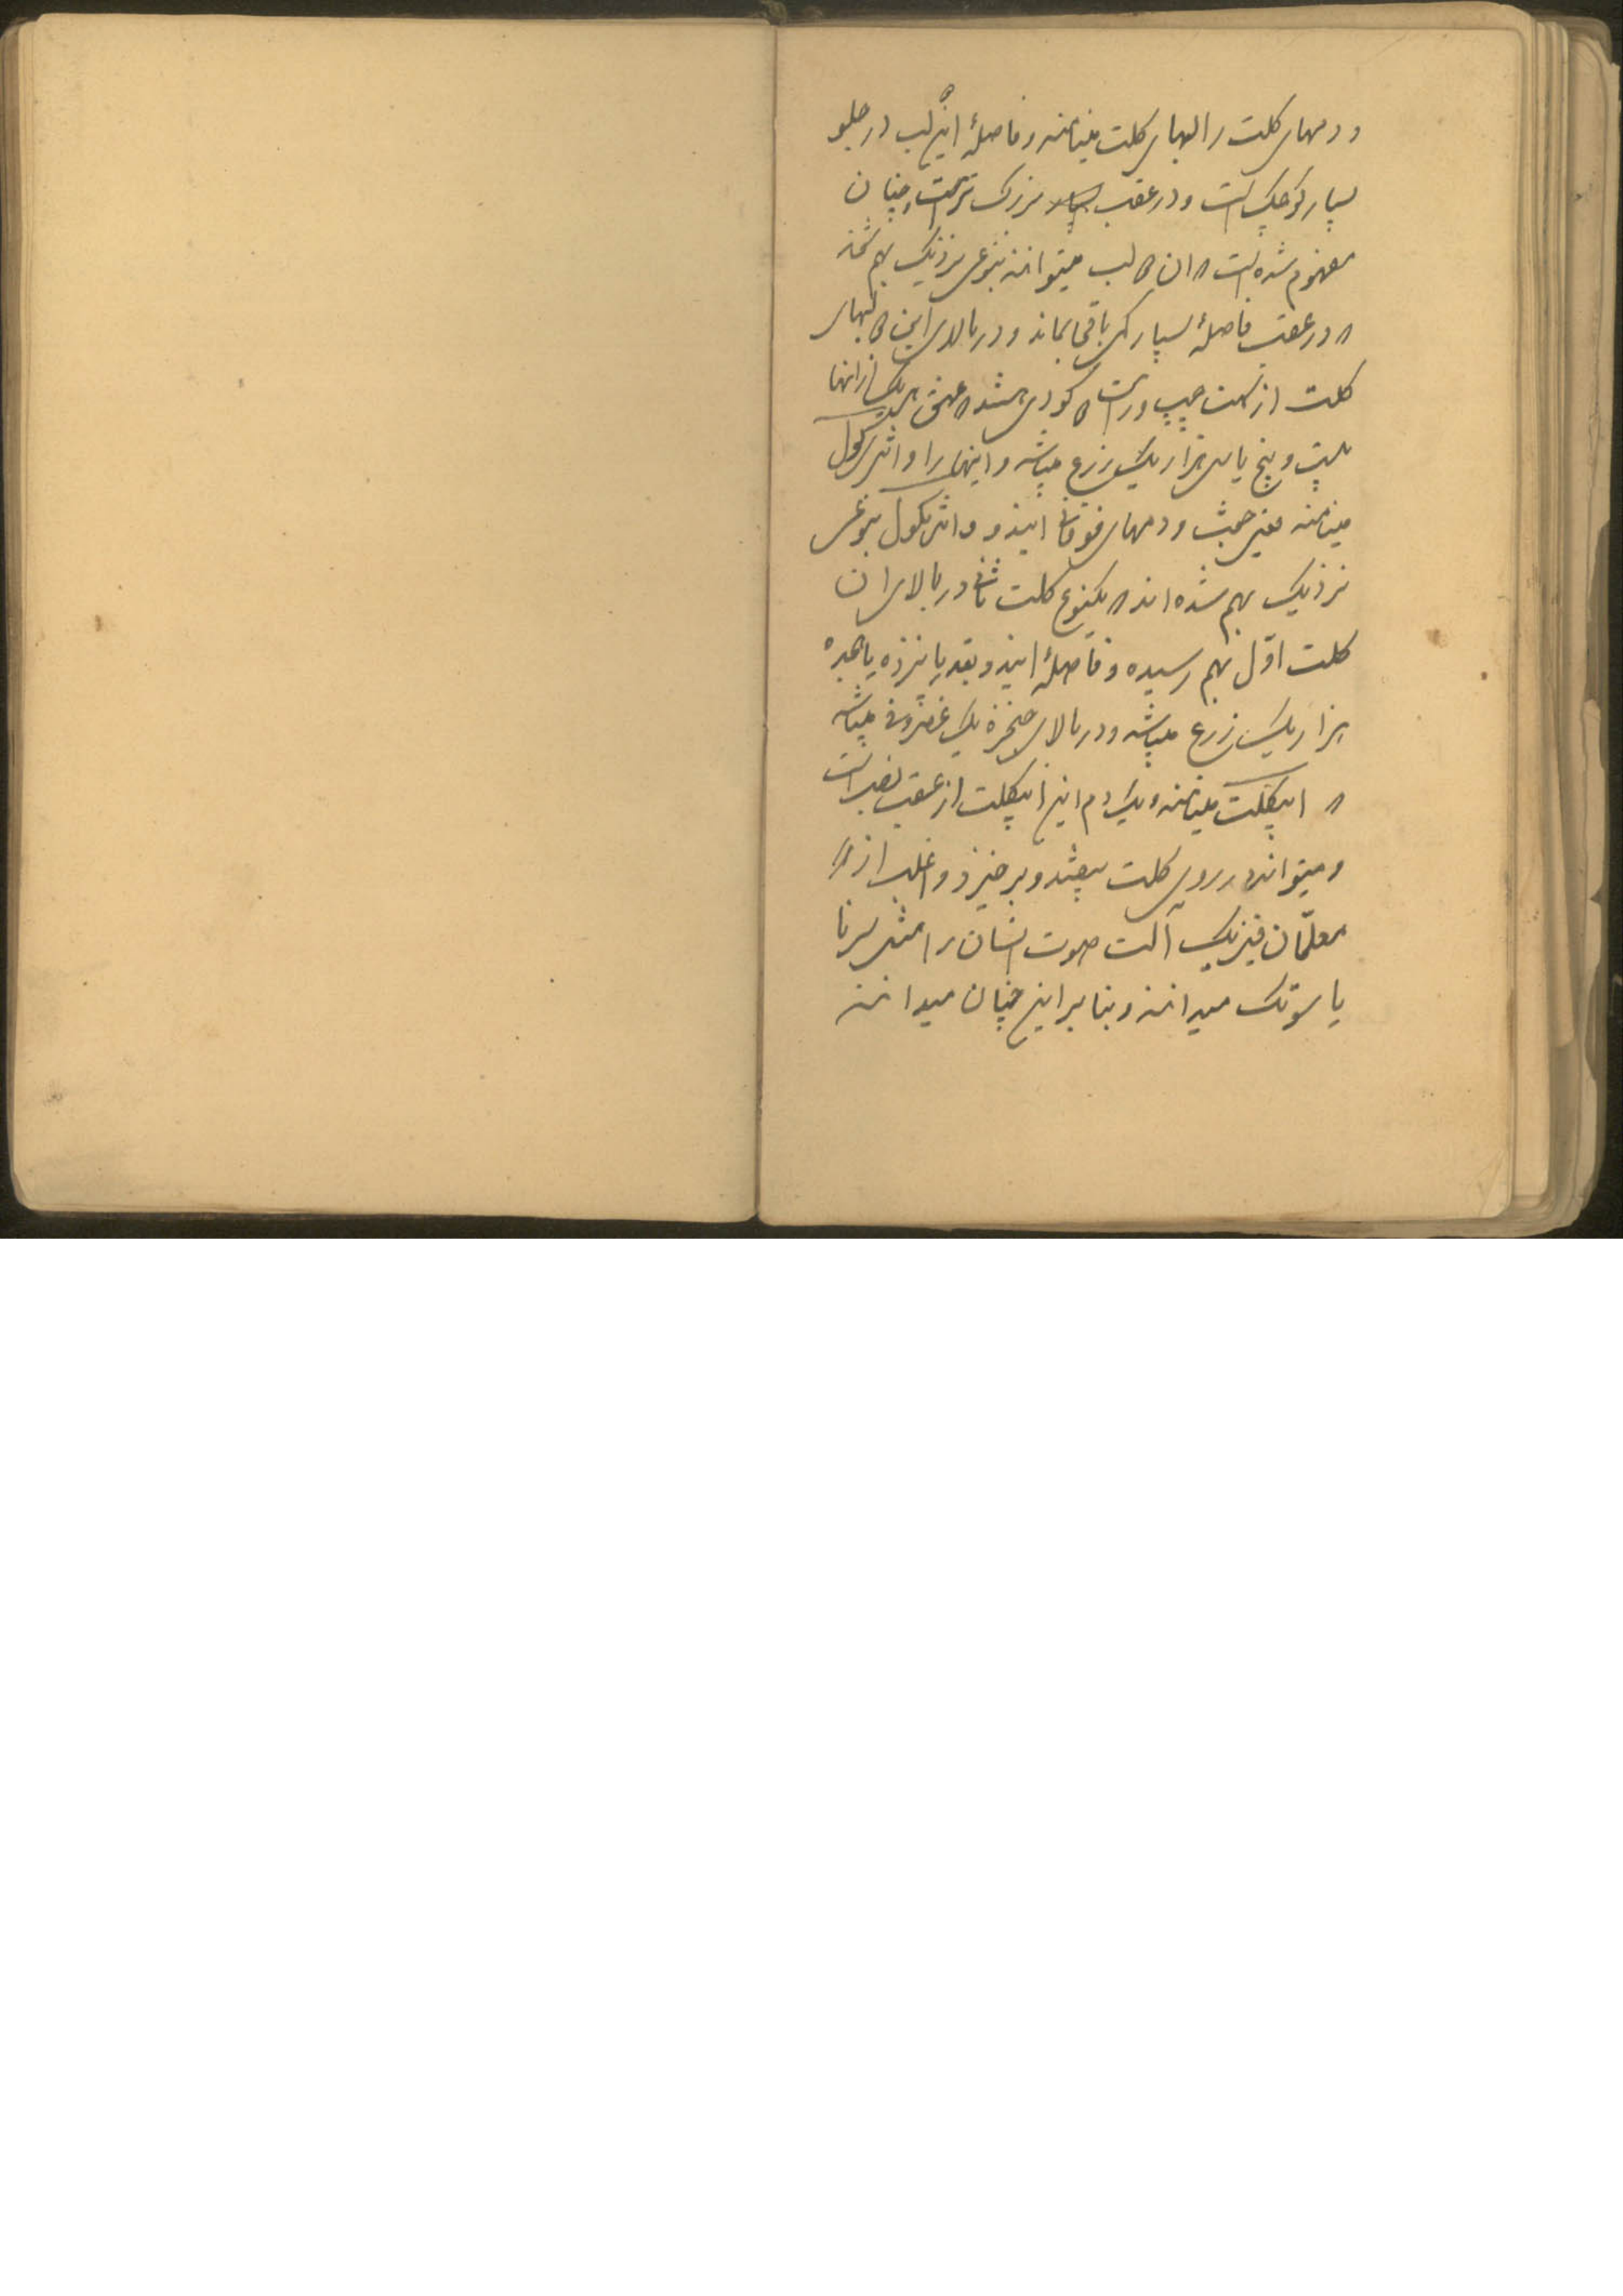 و دمهای کلت را لبهای کلت مینامند و فاصلهٔ این ۲ لب در جلو
بسیار کوچک است و در عقب بزرگ تر است و چنان
مفهوم شده است که ان ۲ لب میتوانند بنوعی نزدیک بهم شوند
که در عقب فاصلهٔ بسیار کمی باقی بماند و در بالای این ۲ لبهای
کلت از سمت چپ و راست ۲ کودی هستند که عمق هر یک از انها
بیست و پنج یا سی هزار یک زرع میباشد و اینها را وانتریکول
مینامند و دمهای فوقانی ایندو وانتریکول بنوعی
نزدیک بهم شده اند که یکنوع کلت ثانی در بالای ان
کلت اوّل بهم رسیده و فاصلهٔ ایندو بقدر پانزده یا هجده
هزار یک زرع میباشد و در بالای حنجره یک غضروفی میباشد
که اپیکلت مینامند و یک دم این اپیکلت از عقب نصب است
و میتواند در روی کلت بیفتد و برخیزد و اغلب از
معلّمان فیزیک آلت صوت انسان را مثل سرنا
یا سوتک میدانند و بنا بر این چنان میدانند